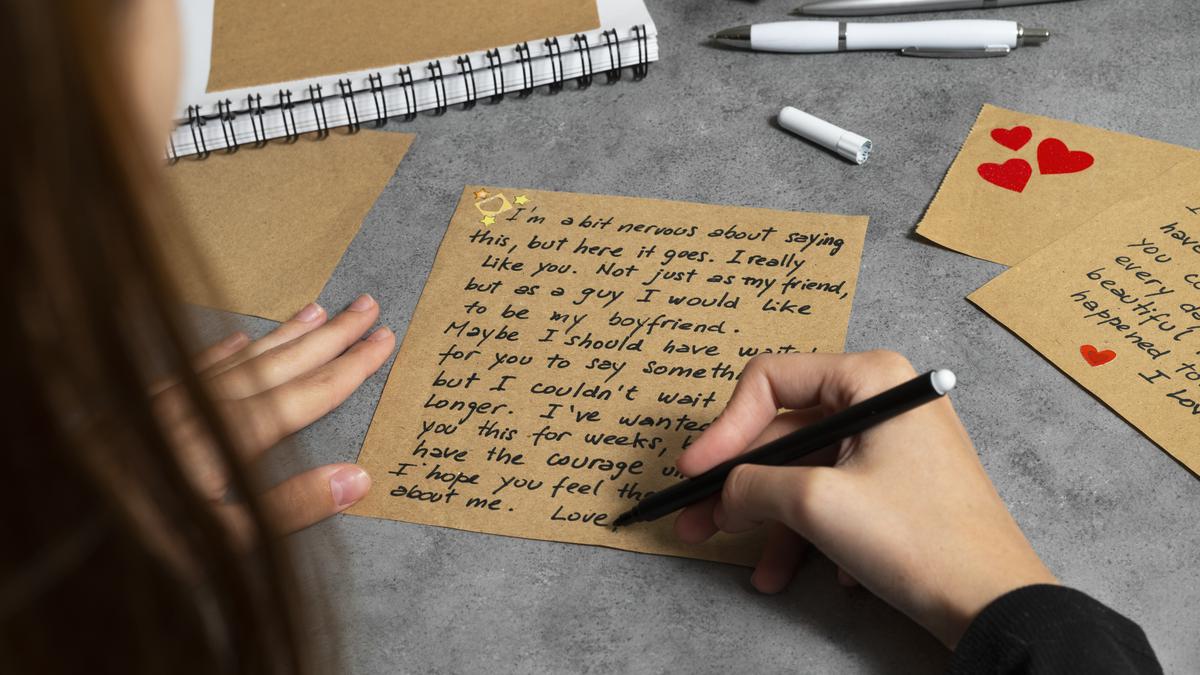 I'm a bit nervous about saying
this, but here it goes. I really
Like you. Not just as my friend,
but as a guy I would like
to be my boyfriend.
Maybe I should have
for you to say
but I couldn't wait
Longer. I've
you this for weeks,
have the courage
I hope you feel
about me. Love,
have
you
every
beautiful
happened to
I